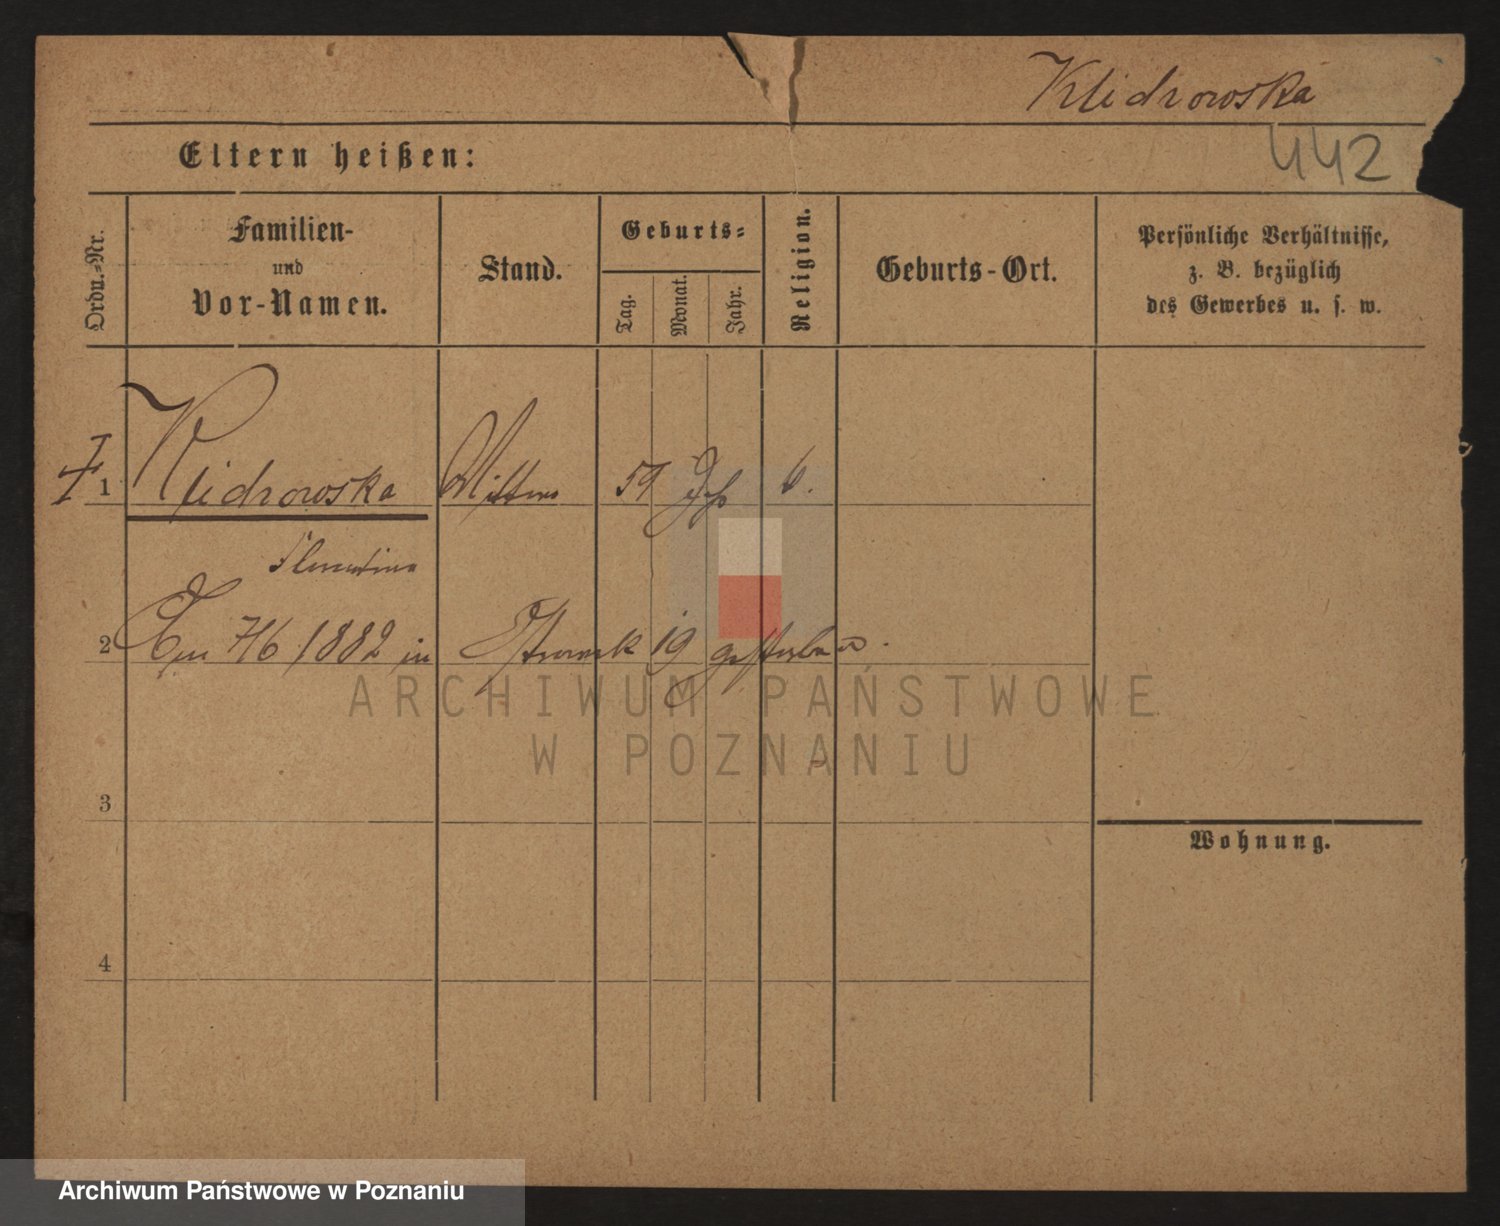 Klidrowska
442
Eltern heißen:
Ordn.=Nr.
Familien-
und
Vor-Namen.
Stand.
Geburts=
Tag.
Monat.
Jahr.
Religion.
Geburts-Ort.
Persönliche Verhältnisse,
z. B. bezüglich
des Gewerbes u. s. w.
1 Klidrowska 59
Florentina
2 7/6 1882 in 19 gestorben.
3
4
Wohnung.
ARCHIWUM PAŃSTWOWE
W POZNANIU
Archiwum Państwowe w Poznaniu